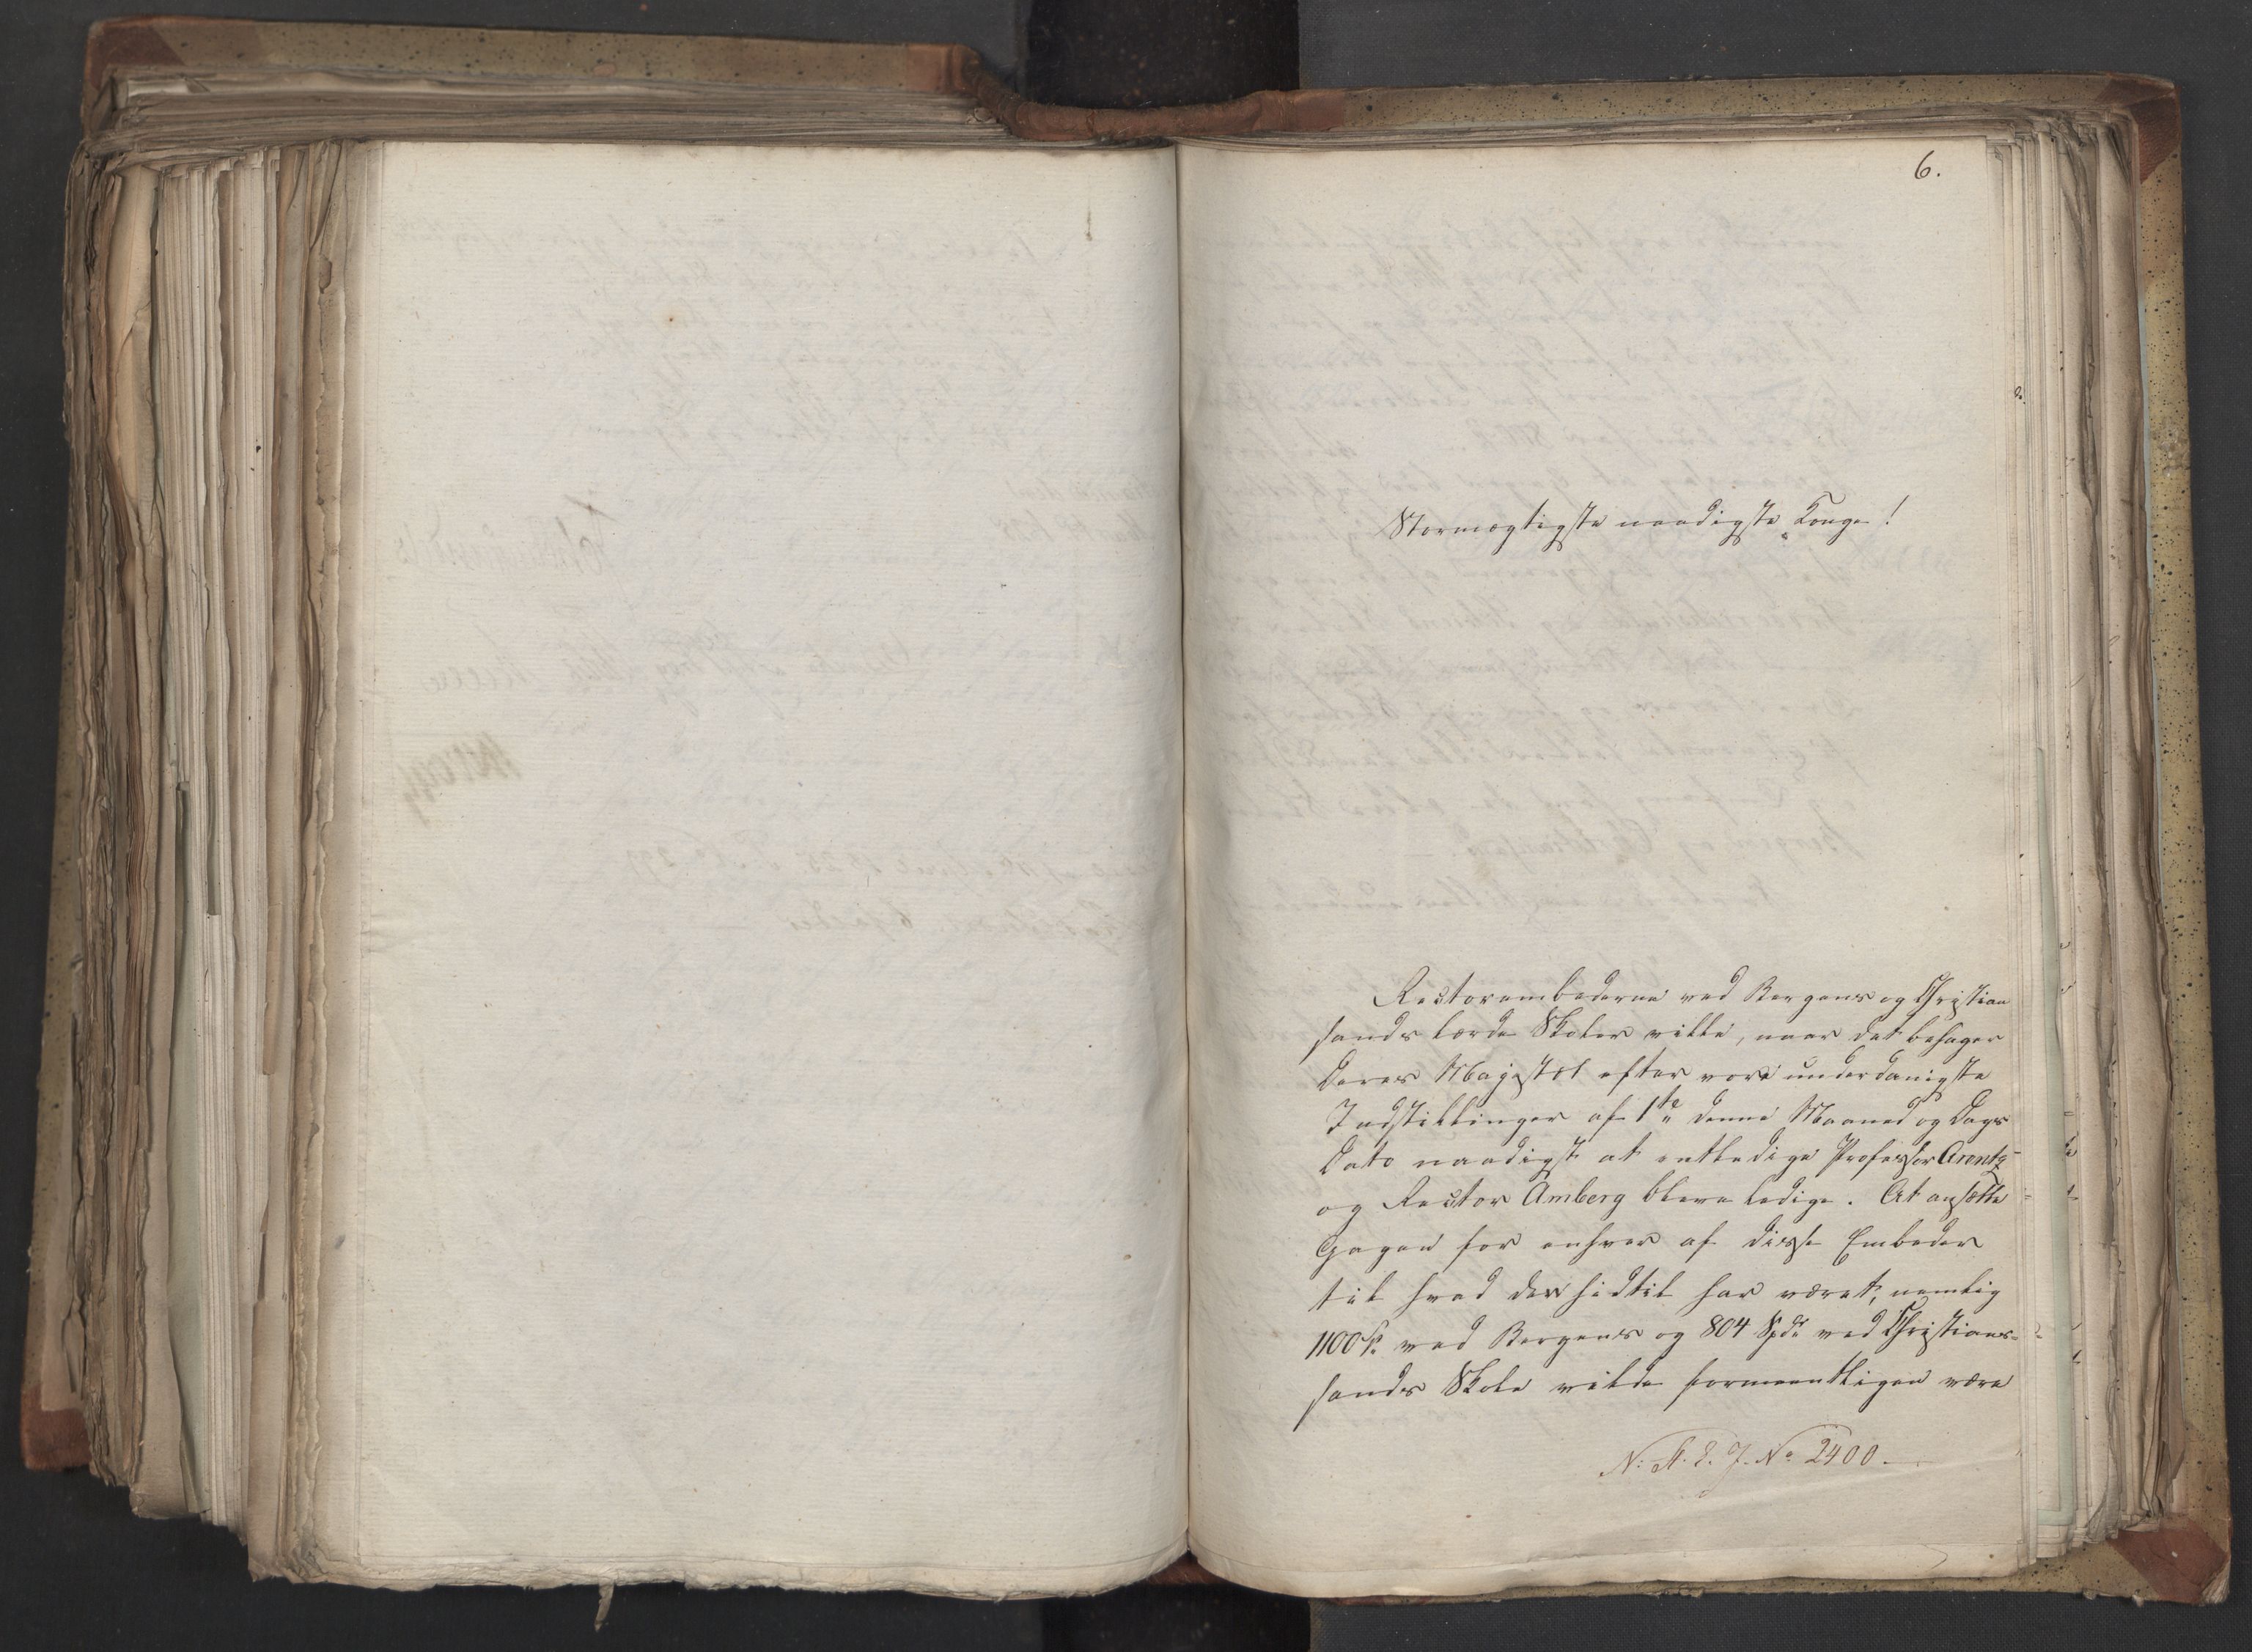 6.
Stormægtigste naadigste Konge!
Rectorembederne ved Bergens og Christian
sands lærde Skoler ville, naar det behager
Deres Majestæt efter vore underdanigste
Indstillinger af 1ste denne Maaned og Dags
Dato naadigst at entledige Professor Arentz
og Rector Amberg blive ledige. At ansætte
Gagen for enhver af disse Embeder
til hvad den hidtil har været, nemlig
1100 Sp. ved Bergens og 804 Spd. ved Christians-
sands Skole vilde formeentligen være
No 2400.